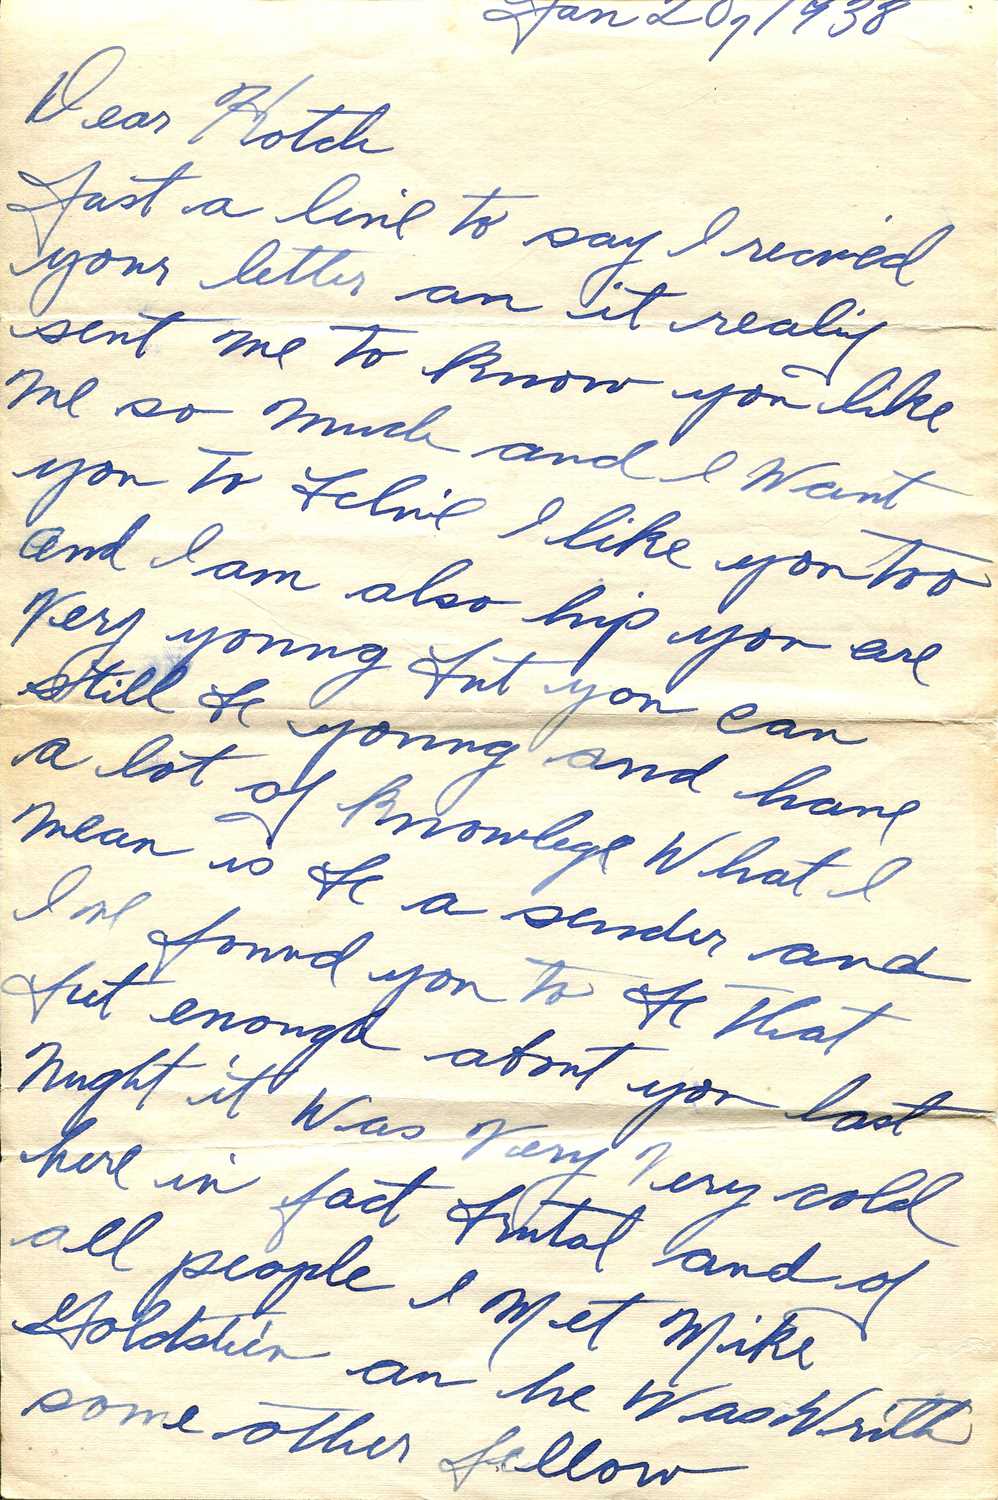 Jan 20, 1938
Dear Kotch
Just a line to say I recived
your letter an it realiy
sent me to know you like
me so much and I want
you to Belive I like you too
and I am also hip you are
very young but you can
still be young and have
a lot of knowlege what I
mean is be a sender and
I've found you to be that
but enough about you last
Nught it was very very cold
here in fact brutal and of
all people I met Mike
Goldstein an he was With
some other fellow